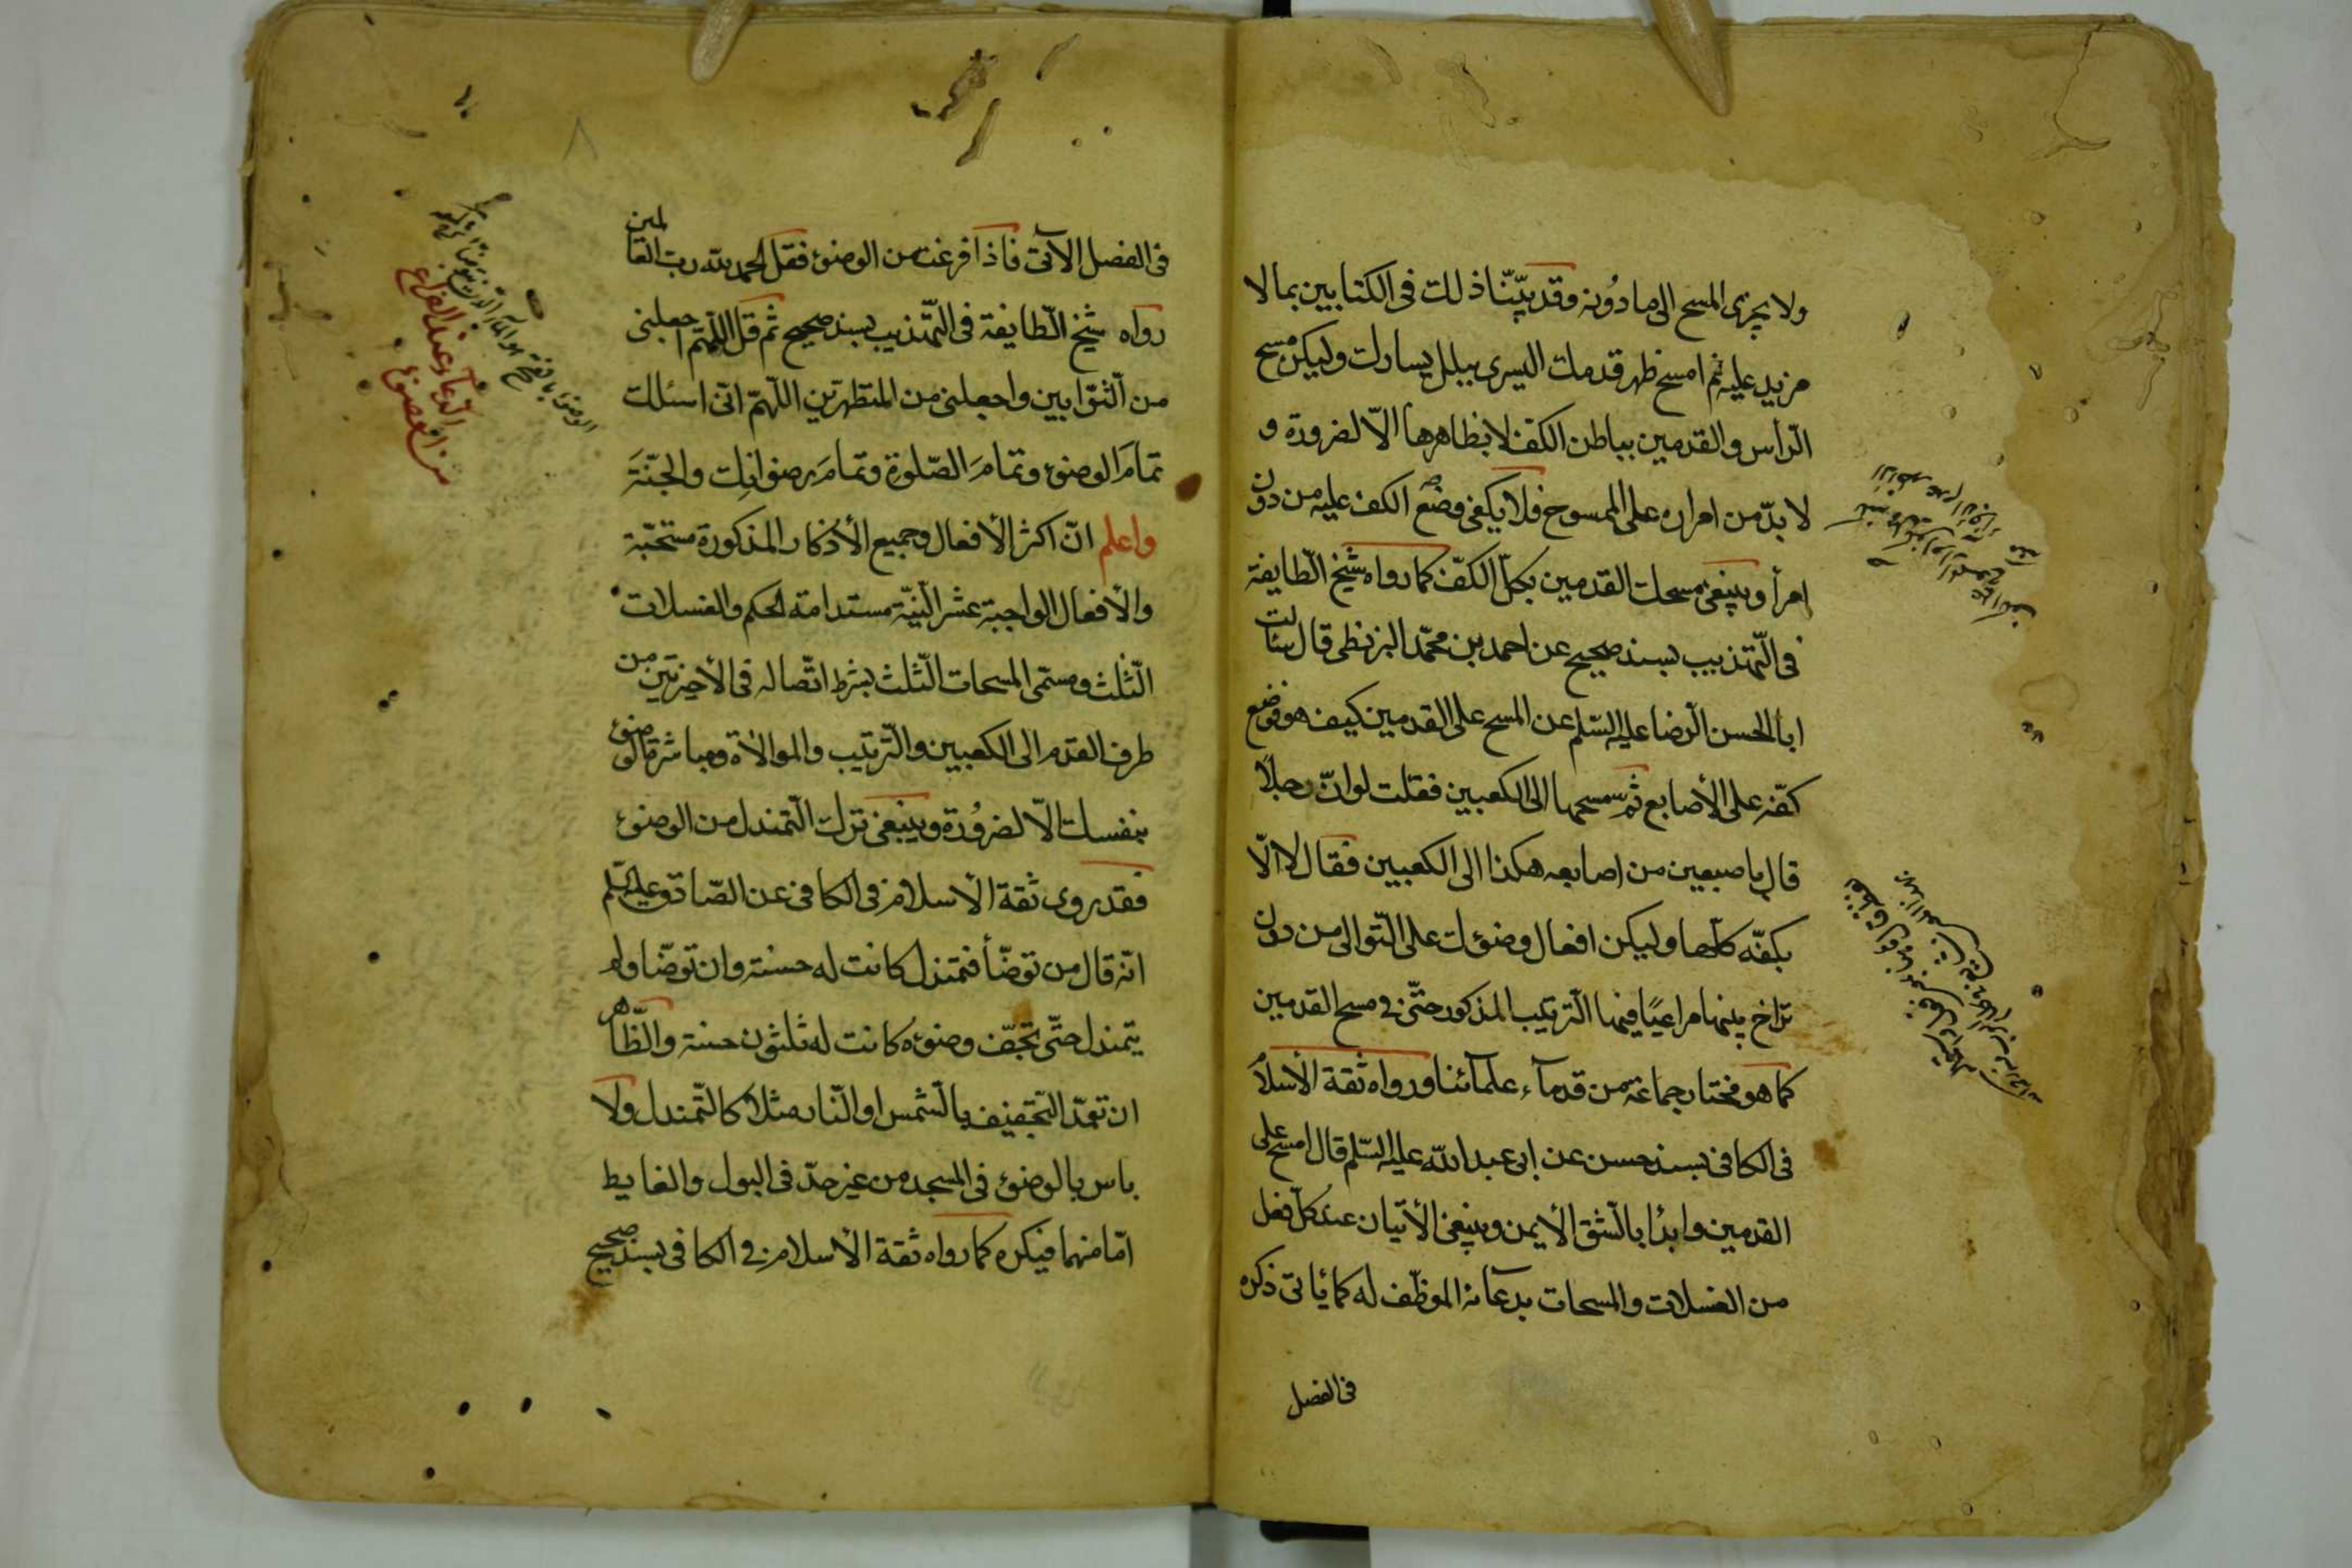 ولا يجزى المسح الى ما دونه وقد بيّنّا ذلك فى الكتابين بما لا
مزيد عليه ثم امسح ظهر قدمك اليسرى ببلل يسارك وليكن مسح
الرّاس والقدمين بباطن الكف لا بظاهرها الّا لضرورة و
لا بدّ من امراره على الممسوح فلا يكفى وضع الكف عليه من دون
امرار وينبغى مسحك القدمين بكلّ الكفّ كما رواه شيخ الطّايفة
فى التّهذيب بسند صحيح عن احمد بن محمّد البزنطى قال سئالت
ابا الحسن الرّضا عليه السّلم عن المسح على القدمين كيف هو فوضع
كفّه على الأصابع ثم مسحها الى الكعبين فقلت لو انّ رجلًا
قال باصبعين من اصابعه هكذا الى الكعبين فقال لا الّا
بكفّه كلّها وليكن افعال وضوئك على التّوالى من دون
تراخ بينها مراعيًا فيها التّرتيب المذكور حتّى فى مسح القدمين
كما هو مختار جماعة من قدمآء علمآئنا ورواه ثقة الأسلام
فى الكافى بسند حسن عن ابى عبد الله عليه السّلم قال امسح على
القدمين وابدأ بالشّق الأيمن وينبغى الأتيان عند كلّ فعل
من الغسلات والمسحات بدعآئه الموظّف له كما يأتى ذكره
فى الفصل
فى الفصل الآتى فاذا فرغت من الوضوء فقل الحمد لله رب العالمين
رواه شيخ الطّايفة فى التّهذيب بسند صحيح ثم قل اللّهمّ اجعلنى
من التّوّابين واجعلنى من المتطهرين اللّهمّ انّى اسئلك
تمامَ الوضوء وتمامَ الصّلوة وتمامَ رضوانك والجنّةَ
واعلم انّ اكثر الأفعال وجميع الأذكار المذكورة مستحبّة
والأفعال الواجبة عشر النّيّة مستدامة الحكم والغسلات
الثّلث ومسمّى المسحات الثّلث بشرط اتّصاله فى الأخيرتين من
طرف القدم الى الكعبين والتّرتيب والموالاة ومباشرة الوضوء
بنفسك الّا لضرورة وينبغى ترك التّمندل من الوضوء
فقد روى ثقة الأسلام فى الكافى عن الصّادق عليه السّلم
انّه قال من توضّأ فتمندل كانت له حسنة وان توضّا ولم
يتمندل حتّى تجفّ وضوئه كانت له ثلثون حسنة والظّاهر
ان تعمّد التّجفيف بالشّمس او النّار مثلا كالتّمندل ولا
باس بالوضوء فى المسجد من غير حدّ فى البول والغايط
امّا منهما فيكره كما رواه ثقة الأسلام فى الكافى بسند صحيح
الدّعآء عند الفراغ
من الوضوء